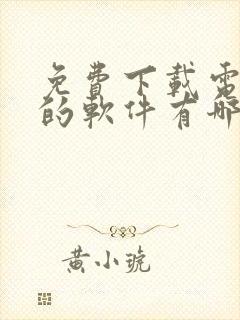 免費下載電
的軟件有哪
黃小琥